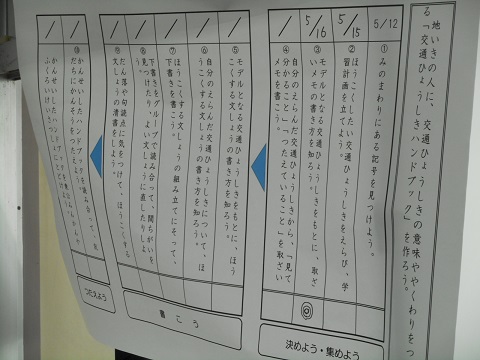 地いきの人に、交通ひょうしきの意味ややくわりをつ
る「交通ひょうしきハンドブック」を作ろう。
5/12
①みのまわりにある記号を見つけよう。
5/15
②ほうこくしたい交通ひょうしきをえらび、学
習計画を立てよう。
5/16
③モデルとなる交通ひょうしきをもとに、取ざ
いメモの書き方を知ろう。
/
④自分のえらんだ交通ひょうしきから、「見て
分かること」「つたえていること」を取ざい
メモを書こう。
◎
決めよう・集めよう
/
⑤モデルとなる交通ひょうしきをもとに、ほう
こくする文しょうの書き方を知ろう。
/
⑥自分のえらんだ交通ひょうしきについて、ほ
うこくする文しょうの書き方を知ろう。
/
⑦ほうこくする文しょうの組み立てにそって、
下書きを書こう。
/
⑧下書きをグループで読み合って、間ちがいを
見つけたり、よい文しょうに直したりしよ
う。
/
⑨だん落や句読点に気をつけて、ほうこくする
文しょうの清書をしよう。
書こう
/
⑩かんせいしたハンドブックを読み合って、友
だちに
つたえよう